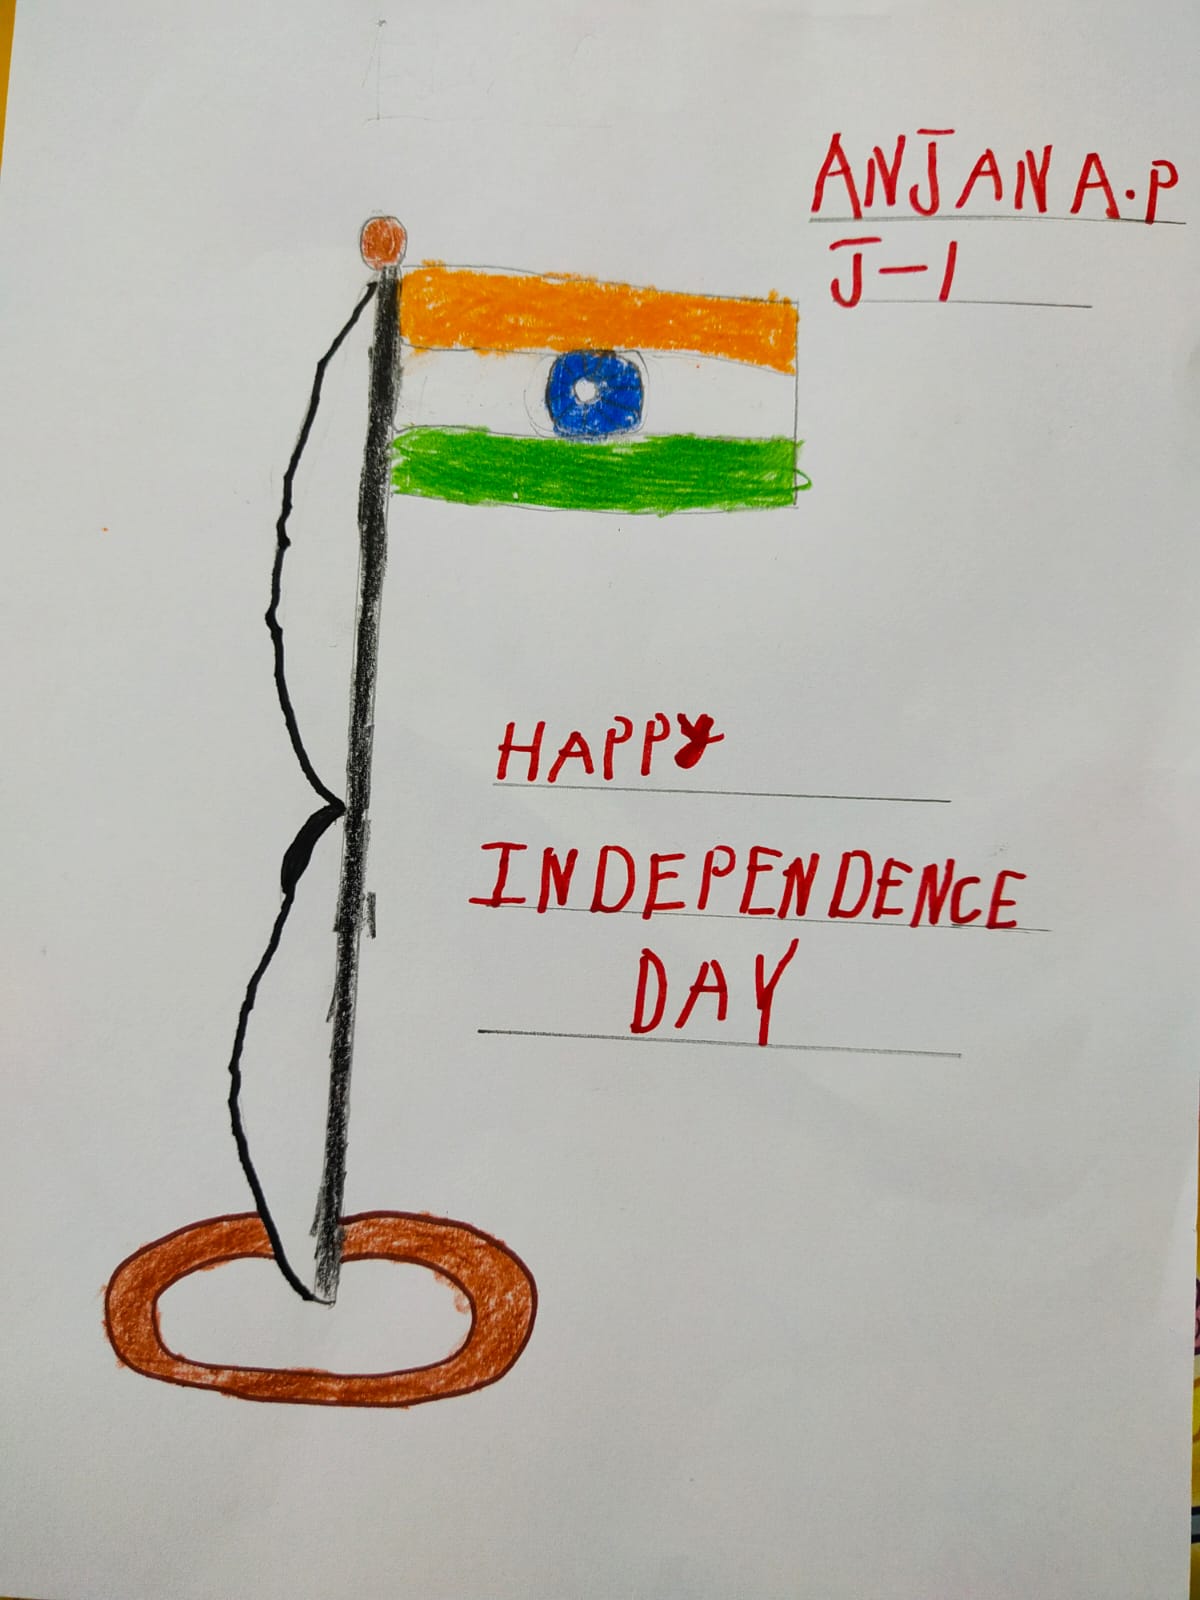 ANJANA.P
J-1
HAPPY
INDEPENDENCE
DAY